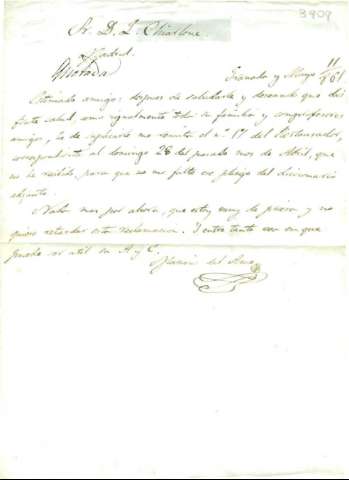 3909
Sr. D. L. Charlone.
Madrid.
Granada y Mayo 11/901
Estimado amigo: despues de saludarle y deseando que dis
frute salud, como igualmente toda su familia y comprofesores
amigos, he de suplicarle me remita el n.º 17 del Restaurador,
correspondiente al domingo 28 del pasado mes de Abril, que
no he recibido, para que no me falte ese pliego del diccionario
adjunto.
Nada mas por ahora, que estoy muy de prisa y no
quiero retardar esta reclamacion. Y entre tanto vea en que
puede ser util su A. y C.
del Amo